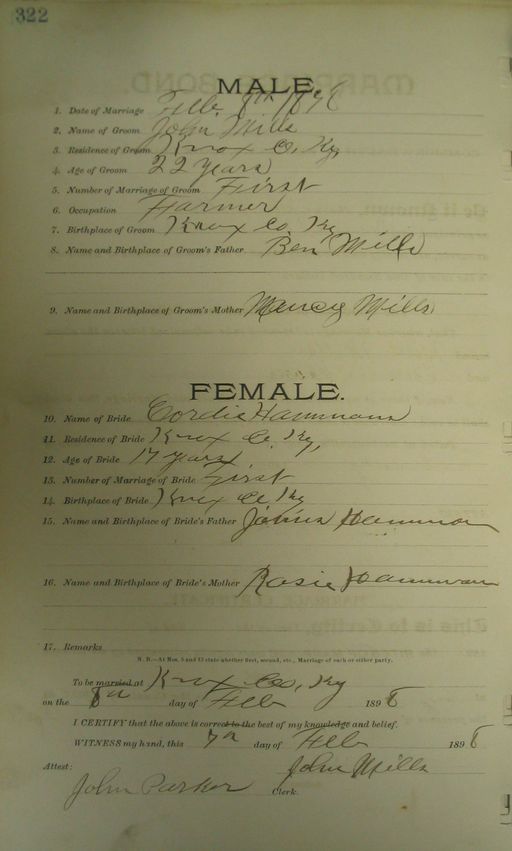 322
MALE.
1. Date of Marriage Feb. 8th 1898
2. Name of Groom John Mills
3. Residence of Groom Knox Co, Ky,
4. Age of Groom 22 years
5. Number of Marriage of Groom First
6. Occupation Farmer
7. Birthplace of Groom Knox Co, Ky
8. Name and Birthplace of Groom's Father Ben Mills
9. Name and Birthplace of Groom's Mother Nancy Mills
FEMALE.
10. Name of Bride Cordia Hammons
11. Residence of Bride Knox Co. Ky,
12. Age of Bride 17 years
13. Number of Marriage of Bride First
14. Birthplace of Bride Knox Co Ky
15. Name and Birthplace of Bride's Father Hammon
16. Name and Birthplace of Bride's Mother Rosie Hammon
17. Remarks
N. B.—At Nos. 5 and 13 state whether first, second, etc., Marriage of each or either party.
To be married at Knox Co, Ky
on the 8th day of Feb 1898
I CERTIFY that the above is correct to the best of my knowledge and belief.
WITNESS my hand, this 7th day of Feb 1898
Attest: John Mills
John Parker Clerk.